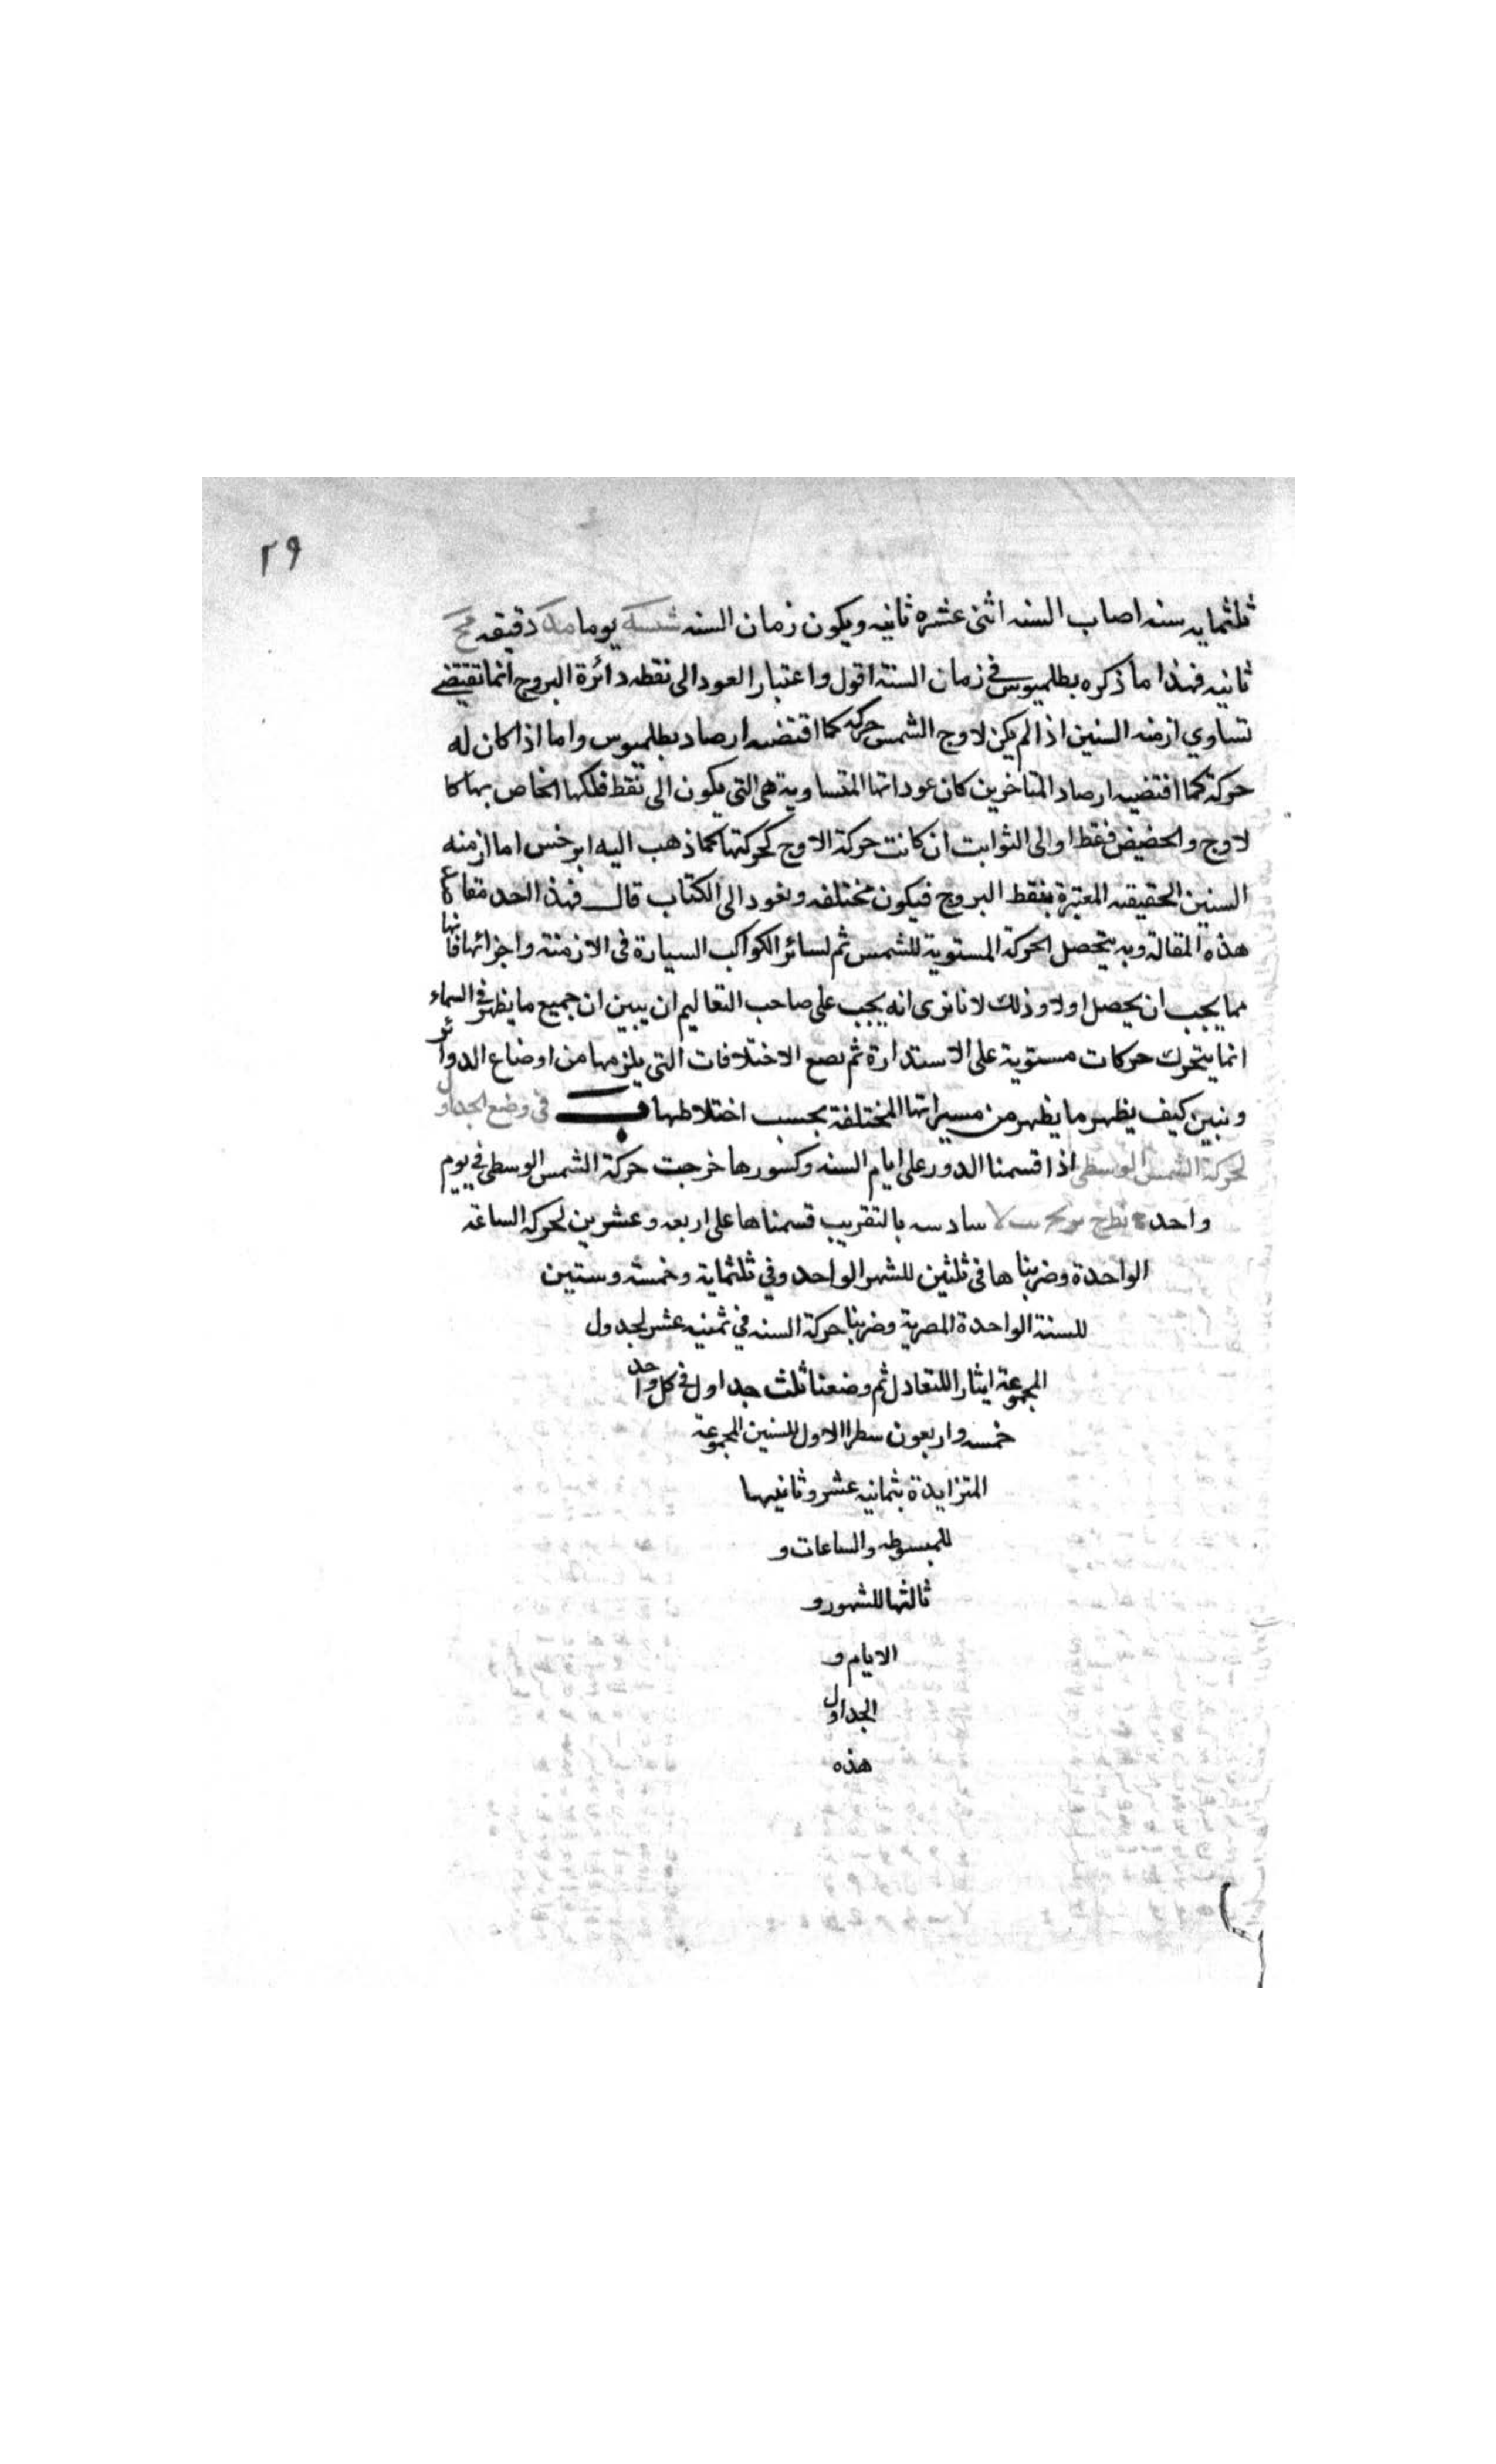 ٢٩
ثلثمايه سنه اصاب السنه اثنى عشره ثانيه ويكون زمان السنه شسه يوما مد دقيقه مح
ثانيه فهذا ما ذكره بطلميوس فى زمان السنة اقول واعتبار العود الى نقطه دائرة البروج انما تقتضى
تساوي ازمنه السنين اذا لم يكن لاوج الشمس حركه كما اقتضيه ارصاد بطلميوس واما اذا كان له
حركة كما اقتضيه ارصاد المتاخرين كان عوداتها المتساوية هى التى يكون الى نقط فلكها الخاص بها كا
لاوج والحضيض فقط او الى الثوابت ان كانت حركة الاوج كحركتها كما ذهب اليه ابرخس اما ازمنه
السنين الحقيقيه المعتبرة بنقط البروج فيكون مختلفه ونعود الى الكتاب قال فهذ الحد
هذه المقالة وبه يتحصل الحركة المستوية للشمس ثم لسائر الكواكب السيارة فى الازمنة واجزائها فانها
مما يجب ان يحصل اولا وذلك لانا نرى انه يجب على صاحب التعاليم ان يبين ان جميع ما يظهر فى السماء
انما يتحرك حركات مستوية على الاستدارة ثم يضع الاختلافات التى يلزمها من اوضاع الدوائر
ونبين كيف يظهر ما يظهر من مسيراتها المختلفة بحسب اختلاطها ب فى وضع الجداول
لحركة الشمس الوسطى اذا قسمنا الدور على ايام السنه وكسورها خرجت حركة الشمس الوسطى فى يوم
واحد ٠ نط ح يز يج يب لا سادسه بالتقريب قسمناها على اربعه وعشرين لحركه الساعة
الواحدة وضربناها فى ثلثين للشهر الواحد وفى ثلثماية وخمسة وستين
للسنة الواحدة المصرية وضربنا حركة السنه فى ثمنيه عشر لجدول
المجموعة ايثارا للتعادل ثم وضعنا ثلث جداول فى كل واحد
خمسه واربعون سطرا الاول للسنين المجموعة
المتزايدة بثمانيه عشر وثانيها
للمبسوطه والساعات و
ثالثها للشهور و
الايام و
الجداول
هذه